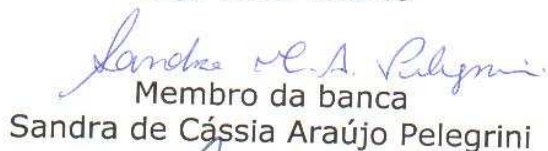 Sandra C. A. Pelegrini
Membro da banca
Sandra de Cássia Araújo Pelegrini